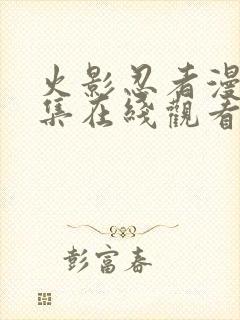 火影忍者漫
集在綫觀看
彭富春